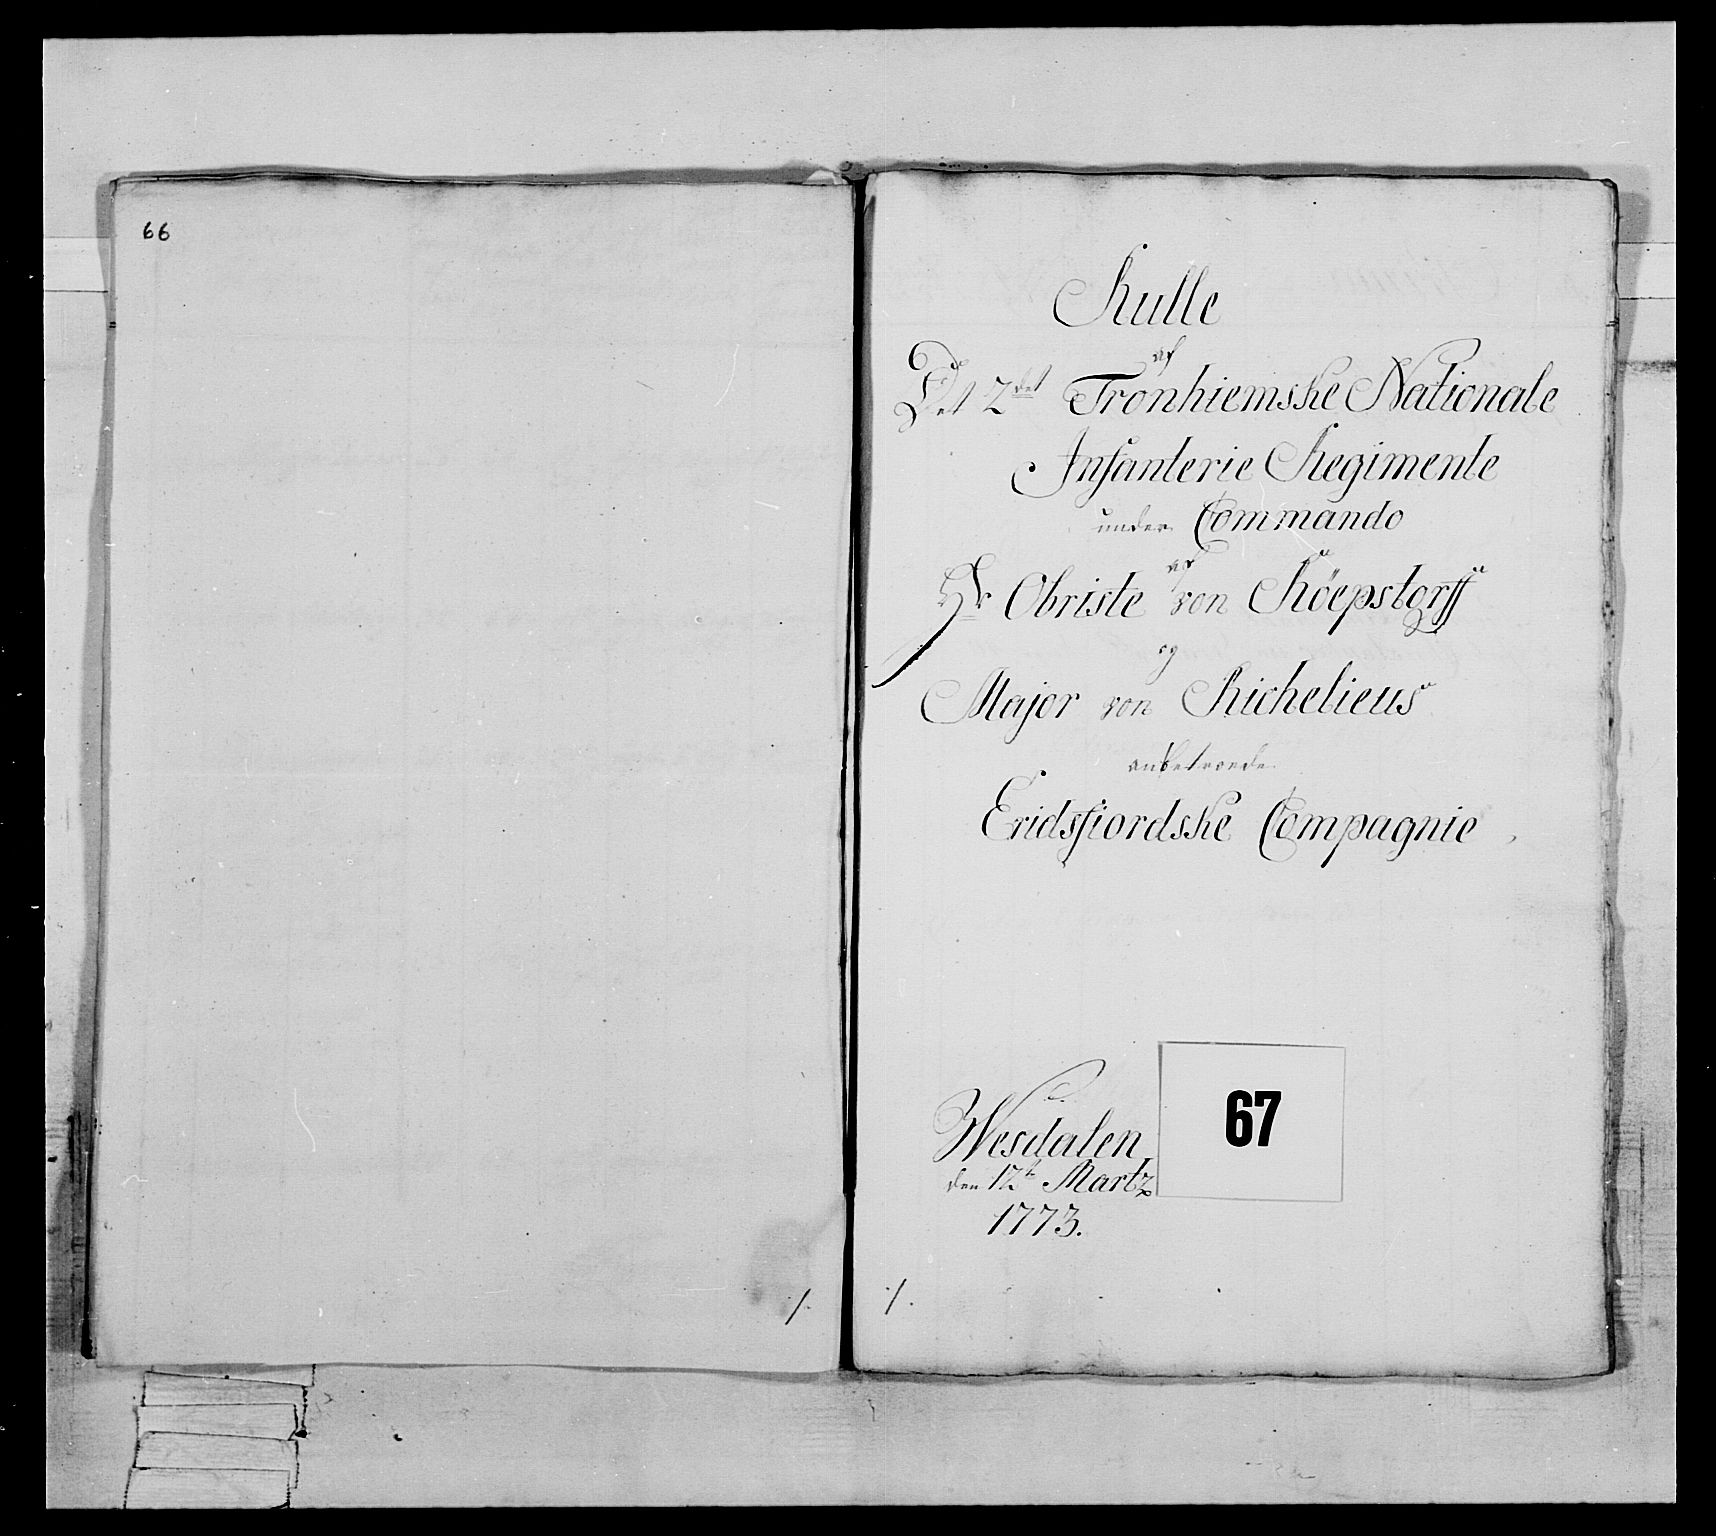 66
Rulle
af
Det 2det Tronhiemske Nationale
Infanterie Regimente
under Commando
af
Hr Obriste von Röepstorff
og
Major von Richelieus
anbetroede
Eridsfiordske Compagnie
67
Wesdalen
den 12te Martz
1773.
/.
/.